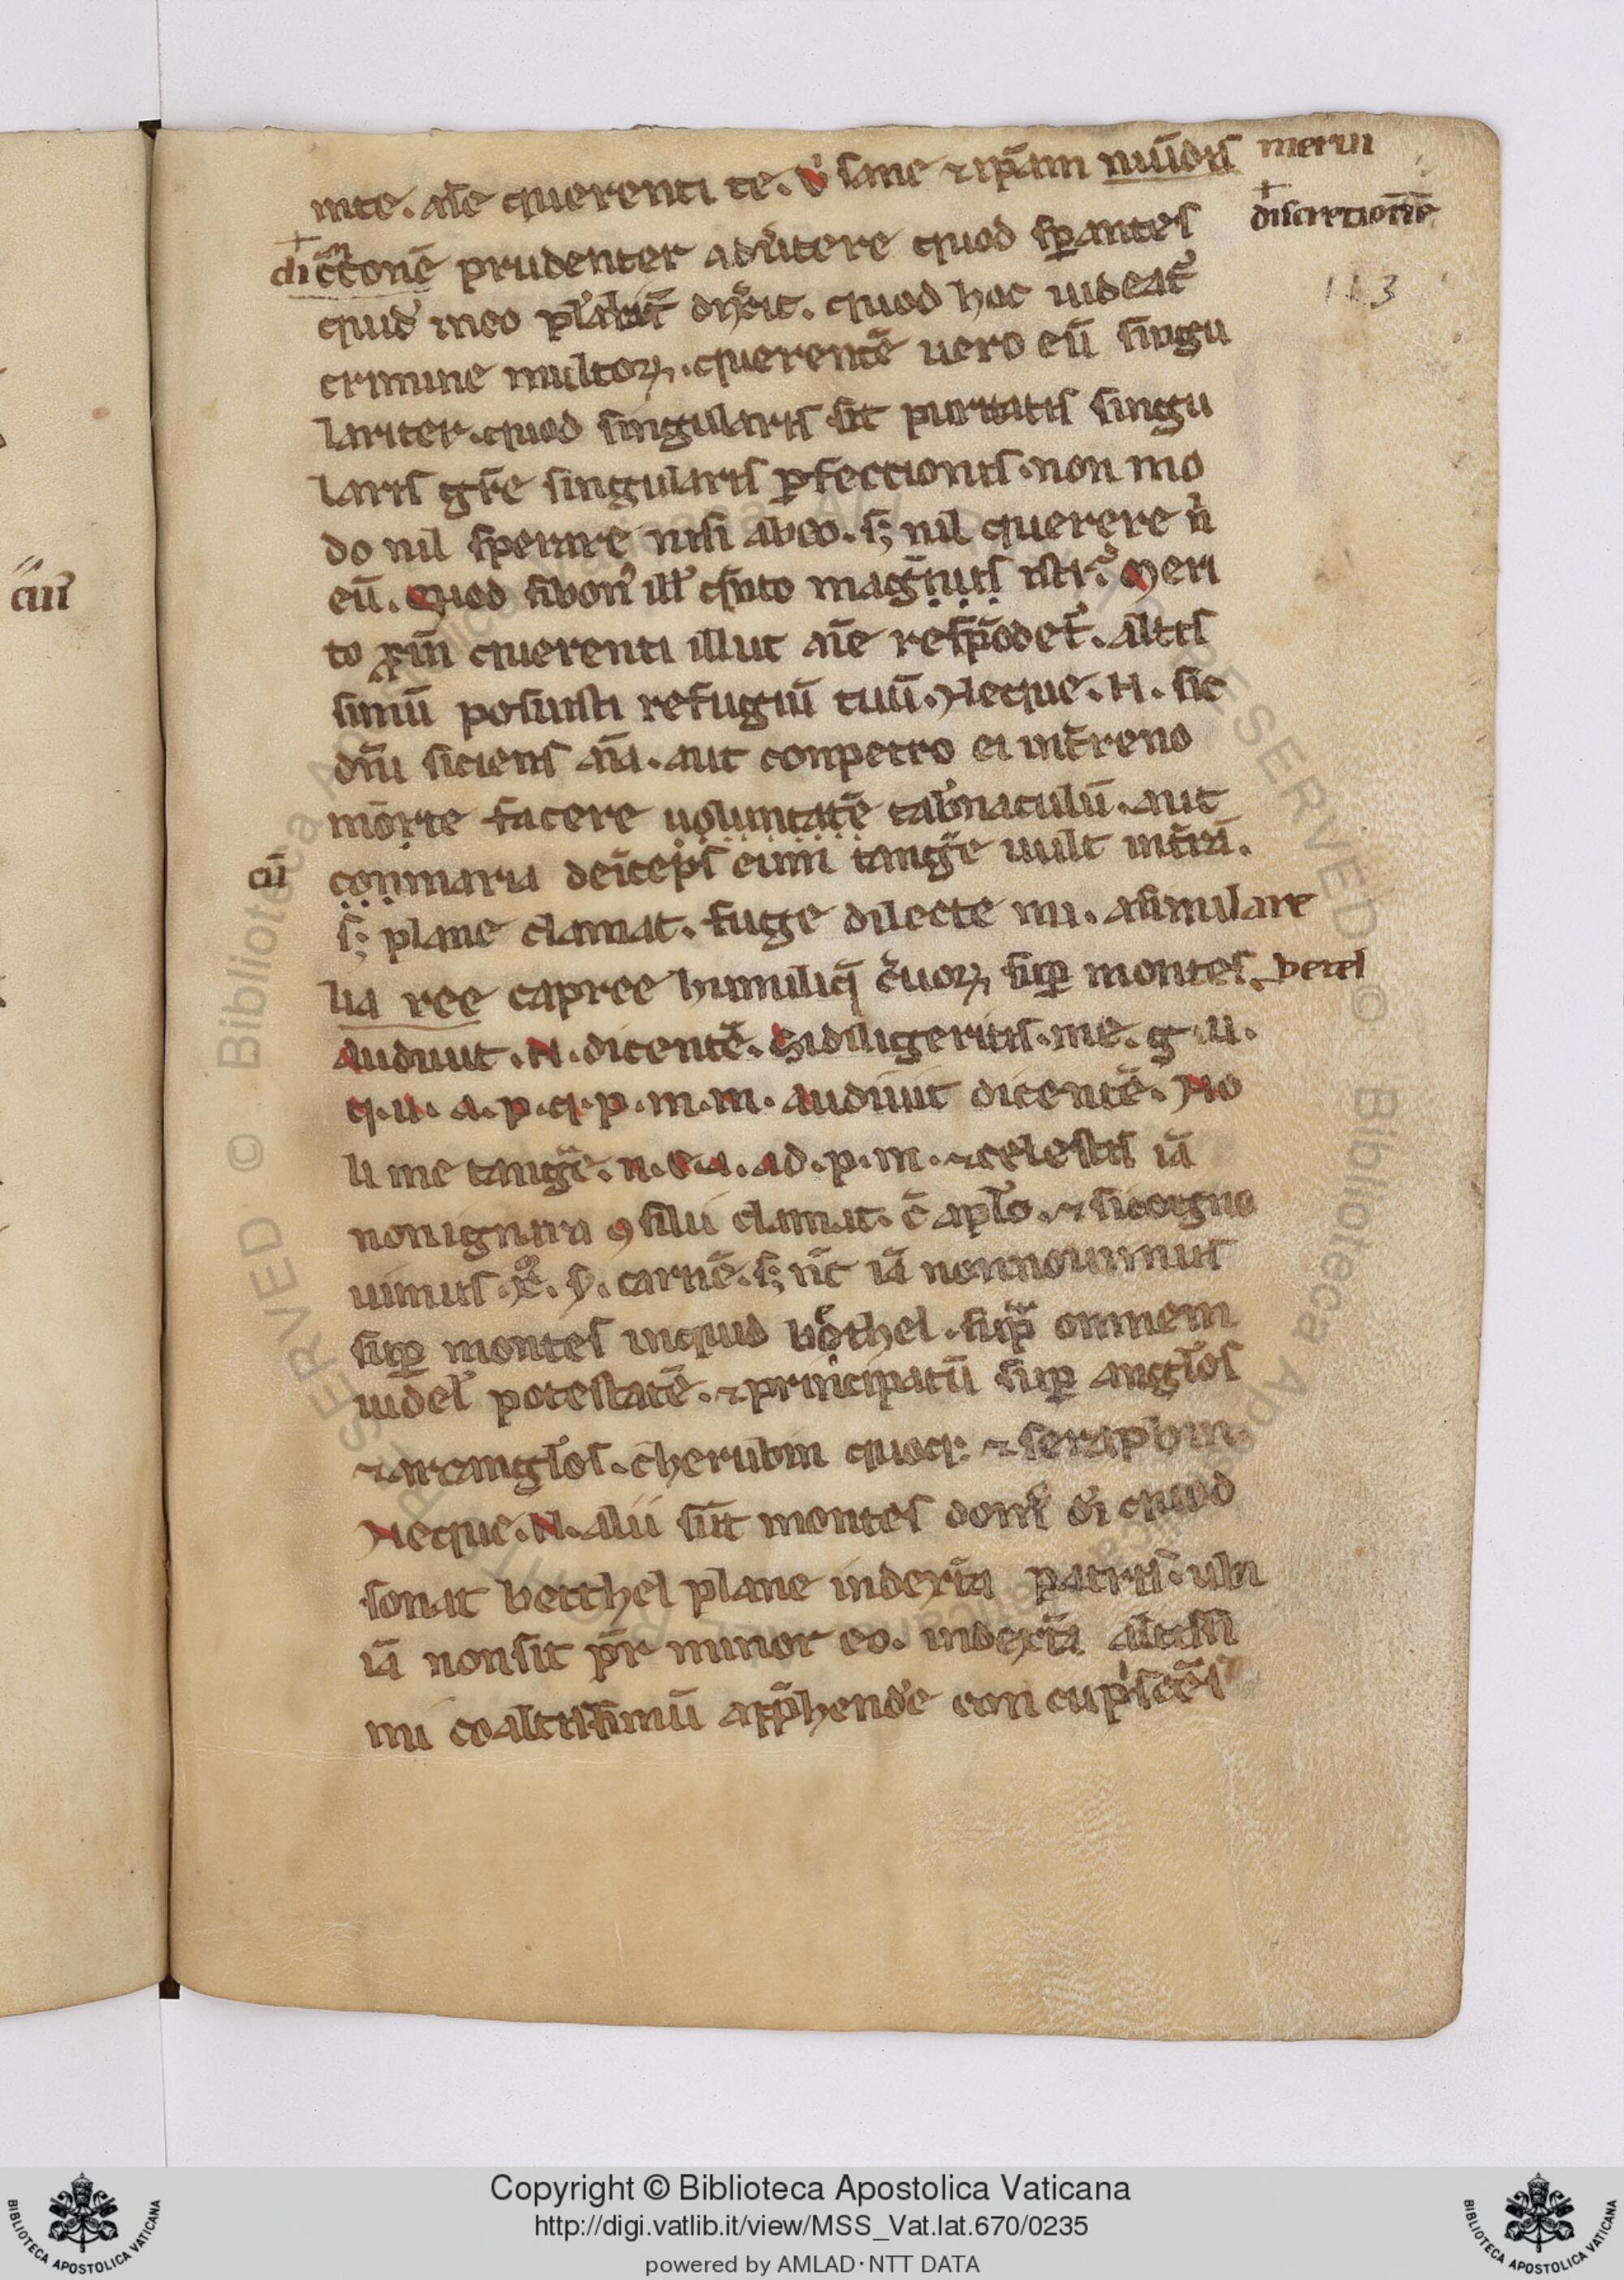 inte. aīe querenti te. Vͥ sane ⁊ ip̄am nūid᷒ meriti
di c̄cionē prudenter adūitere quod sꝑantes discretionē
quidē meo dix̄it. quod hoc uideat᷒
crimine multoꝝ. querentē uero eū singu
lariter. quod singularis sit puritatis singu
laris gr̄e singularis ꝑfectionis. non mo
do nil sperare nisi abeo. sꝫ nil querere n̄
eū. Quod sibon᷒ ill᷒ istr̄. Meri
to querenti illut aīe respōdet᷒. Altis
simū posuisti refugiū tuū. Neque. N. sic
dn̄i siciens aīa. aut conpetro ei int̄reno
mōrte facere uoluntatē tab̄naculū. aut
cū conmaria deīceps eum tange᷒ uult int̄ra.
sꝫ plane clamat. fuge dilecte mi. asimilare
lia ree capree himuliq̄ c̄uoꝝ suꝑ montes. betel
Audiuit. N. dicentē. Sidiligeritis. me. g. u.
q. u. a. p. q. p. m. m. audiuit dicentē. No
li me tange᷒. n. e. a. ad. p. m. ⁊ celestis iā
non ignara ꝯsilii clamat. c̄ apl̄o. ⁊ sicogno
uimus. x̄. s. carnē. sꝫ nc̄ iā nonnouimus
suꝑ montes inquid bethel. sup̄ omnem
uidel᷒ potestatē. ⁊ principatū suꝑ angl̄os
⁊ arcangl̄os. cherubin quoqꝫ ⁊ seraphin.
Neque. N. alii sūt montes dom᷒ di quod
sonat betthel plane index̄ra patris. ubi
iā nonsit pr̄ minor eo. index̄ra altissi
mi coaltissimū app̄hende᷒ con cupiscēs
cui᷒
113
Copyright © Biblioteca Apostolica Vaticana
http://digi.vatlib.it/view/MSS_Vat.lat.670/0235
powered by AMLAD·NTT DATA
BIBLIOTECA APOSTOLICA VATICANA
BIBLIOTECA APOSTOLICA VATICANA